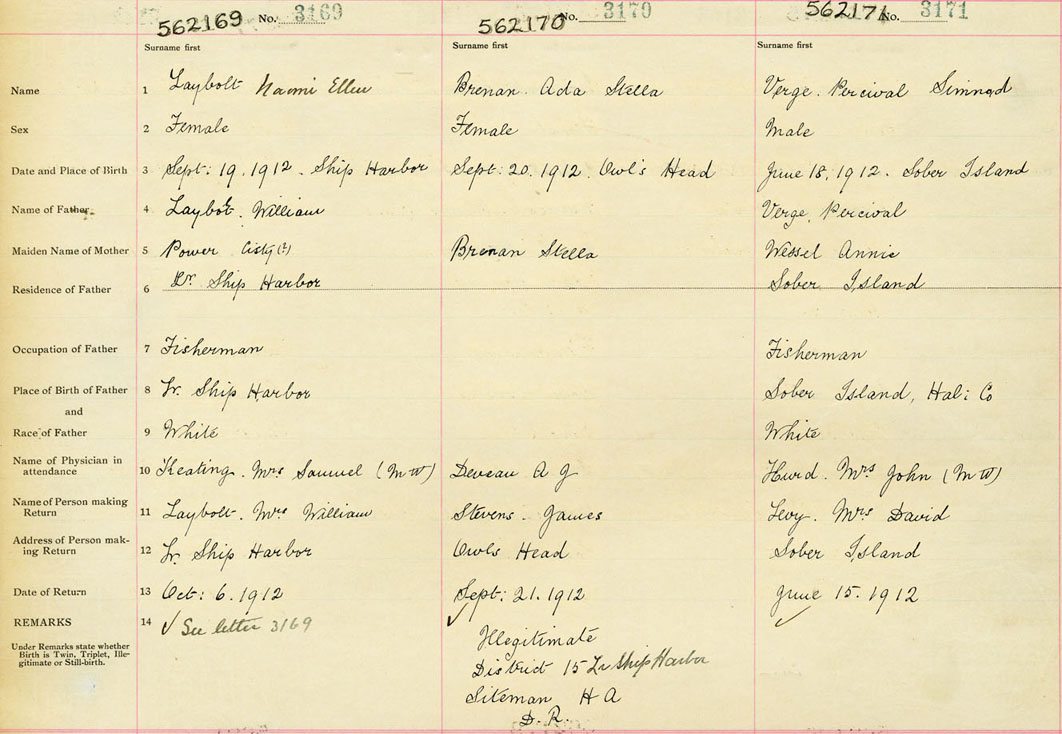 562169 No. 3169 562170 No. 3170 562171 No. 3171
Surname first Surname first Surname first
Name 1 Laybolt Naomi Ellen Brenan. Ada Stella Verge. Percival
Sex 2 Female Female Male
Date and Place of Birth 3 Sept: 19. 1912. Ship Harbor Sept: 20. 1912. Owl's Head June 18, 1912. Sober Island
Name of Father 4 Laybolt. William Verge, Percival
Maiden Name of Mother 5 Power (?) Brenan Stella Wessel Annie
Residence of Father 6 Lr. Ship Harbor Sober Island
Occupation of Father 7 Fisherman Fisherman
Place of Birth of Father 8 Lr. Ship Harbor Sober Island, Hal: Co
and
Race of Father 9 White White
Name of Physician in
attendance 10 Keating. Mrs Samuel (M W) Deveau A J Hurd. Mrs John (M W)
Name of Person making
Return 11 Laybolt. Mrs William Stevens. James Levy. Mrs David
Address of Person mak-
ing Return 12 Lr. Ship Harbor Owls Head Sober Island
Date of Return 13 Oct: 6. 1912 Sept: 21. 1912 June 15. 1912
REMARKS 14 ✓ See letter 3169 ✓ ✓
Under Remarks state whether
Birth is Twin, Triplet, Ille-
gitimate or Still-birth.
Illegitimate
District 15 Lr Ship Harbor
Siteman H A
D. R.